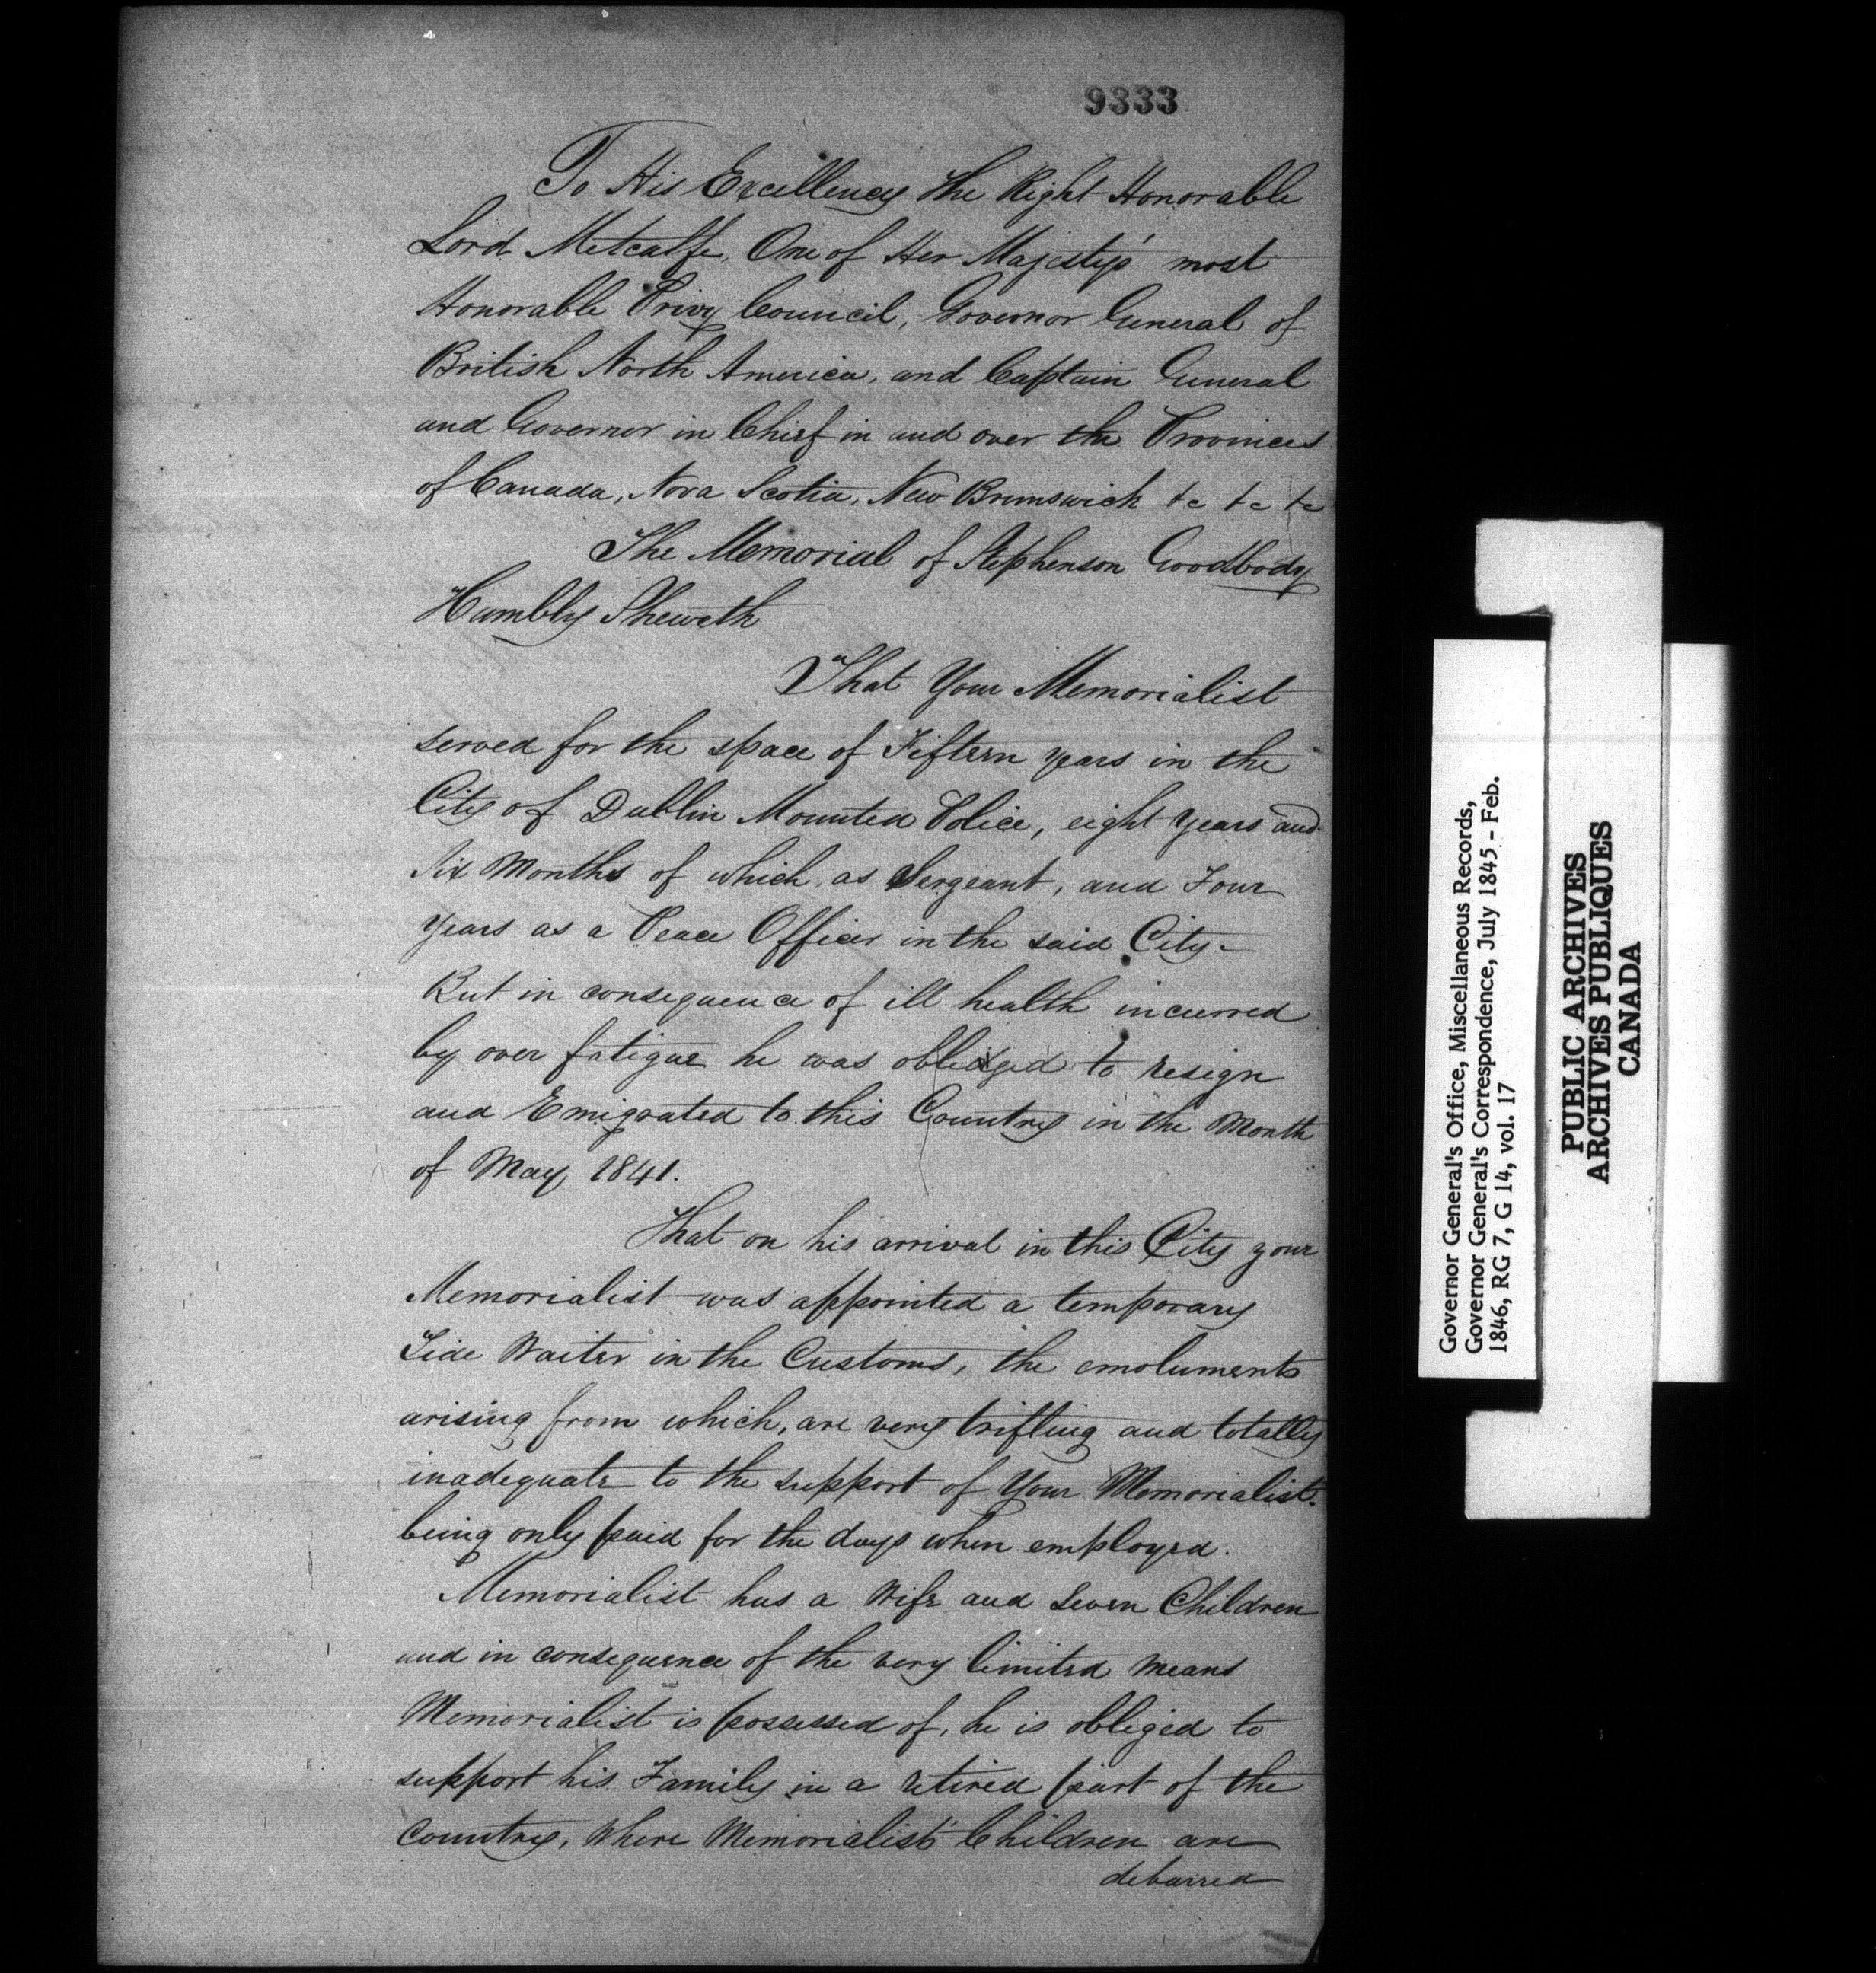 9333
To His Excellency The Right Honorable
Lord Metcalfe, One of Her Majesty's most
Honorable Privy Council, Governor General of
British North America, and Captain General
and Governor in Chief in and over the Provinces
of Canada, Nova Scotia, New Brunswick &c &c &c
The Memorial of Stephenson Goodbody
Humbly Sheweth
That Your Memorialist
served for the space of Fifteen years in the
City of Dublin Mounted Police, eight years and
six Months of which as Sergeant, and Four
years as a Peace Officer in the said City.
But in consequence of ill health incurred
by over fatigue he was obliged to resign
and Emigrated to this Country in the Month
of May 1841.
That on his arrival in this City your
Memorialist was appointed a temporary
Tide Waiter in the Customs, the emoluments
arising from which, are very trifling and totally
inadequate to the support of Your Memorialist.
being only paid for the days when employed.
Memorialist has a Wife and Seven Children
and in consequence of the very limited means
Memorialist is possessed of, he is obliged to
support his Family in a retired part of the
Country, Where Memorialist's Children are
debarred
Governor General's Office, Miscellaneous Records,
Governor General's Correspondence, July 1845 - Feb.
1846, RG 7, G 14, vol. 17
PUBLIC ARCHIVES
ARCHIVES PUBLIQUES
CANADA